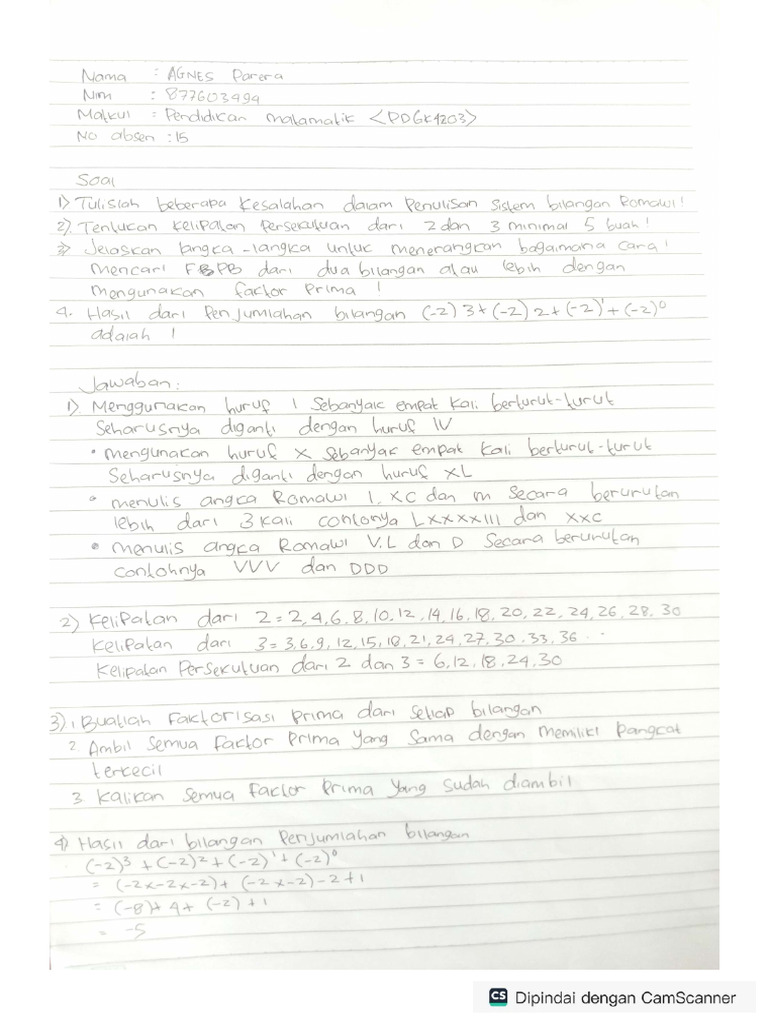 Nama : AGNES Parera
Nim : 877603494
Matkul : Pendidikan matamatik <PDGK4203>
No absen : 15
Soal
1) Tulislah beberapa kesalahan dalam Penulisan sistem bilangan Romawi!
2). Tentukan kelipatan Persekutuan dari 2 dan 3 minimal 5 buah!
3) Jelaskan langka-langka untuk menerangkan bagaimana cara
mencari FBPB dari dua bilangan atau lebih dengan
mengunakan factor Prima !
4. Hasil dari Penjumlahan bilangan (-2) 3 + (-2) 2 + (-2)¹ + (-2)⁰
adalah !
Jawaban :
1) Menggunakan huruf I Sebanyak empat kali berturut-turut
Seharusnya diganti dengan huruf IV
• mengunakan huruf X Sebanyak empat kali berturut-turut
Seharusnya diganti dengan huruf XL
• menulis angka Romawi I, XC dan m Secara berurutan
lebih dari 3 kali contonya LXXXXIII dan XXC
• menulis angka Romawi V.L dan D Secara berurutan
contohnya VVV dan DDD
2) Kelipatan dari 2 = 2, 4, 6, 8, 10, 12, 14, 16, 18, 20, 22, 24, 26, 28, 30
Kelipatan dari 3 = 3, 6, 9, 12, 15, 18, 21, 24, 27, 30, 33, 36 . .
Kelipatan Persekutuan dari 2 dan 3 = 6, 12, 18, 24, 30
3) 1. Buatlah Faktorisasi Prima dari setiap bilangan
2. Ambil Semua Factor Prima yang Sama dengan memiliki Pangkat
terkecil
3. Kalikan Semua Faktor Prima yang sudah diambil
4) Hasil dari bilangan Penjumlahan bilangan
(-2)³ + (-2)² + (-2)¹ + (-2)⁰
= (-2x-2x-2) + (-2x-2) - 2 + 1
= (-8) + 4 + (-2) + 1
= -5
CS Dipindai dengan CamScanner